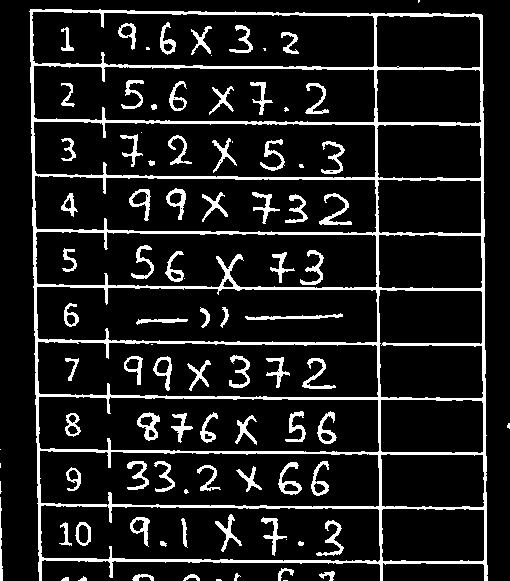 1 9.6 X 3.2
2 5.6 X 7.2
3 7.2 X 5.3
4 99 X 732
5 56 X 73
6 —〃—
7 99 X 372
8 876 X 56
9 33.2 X 66
10 9.1 X 7.3